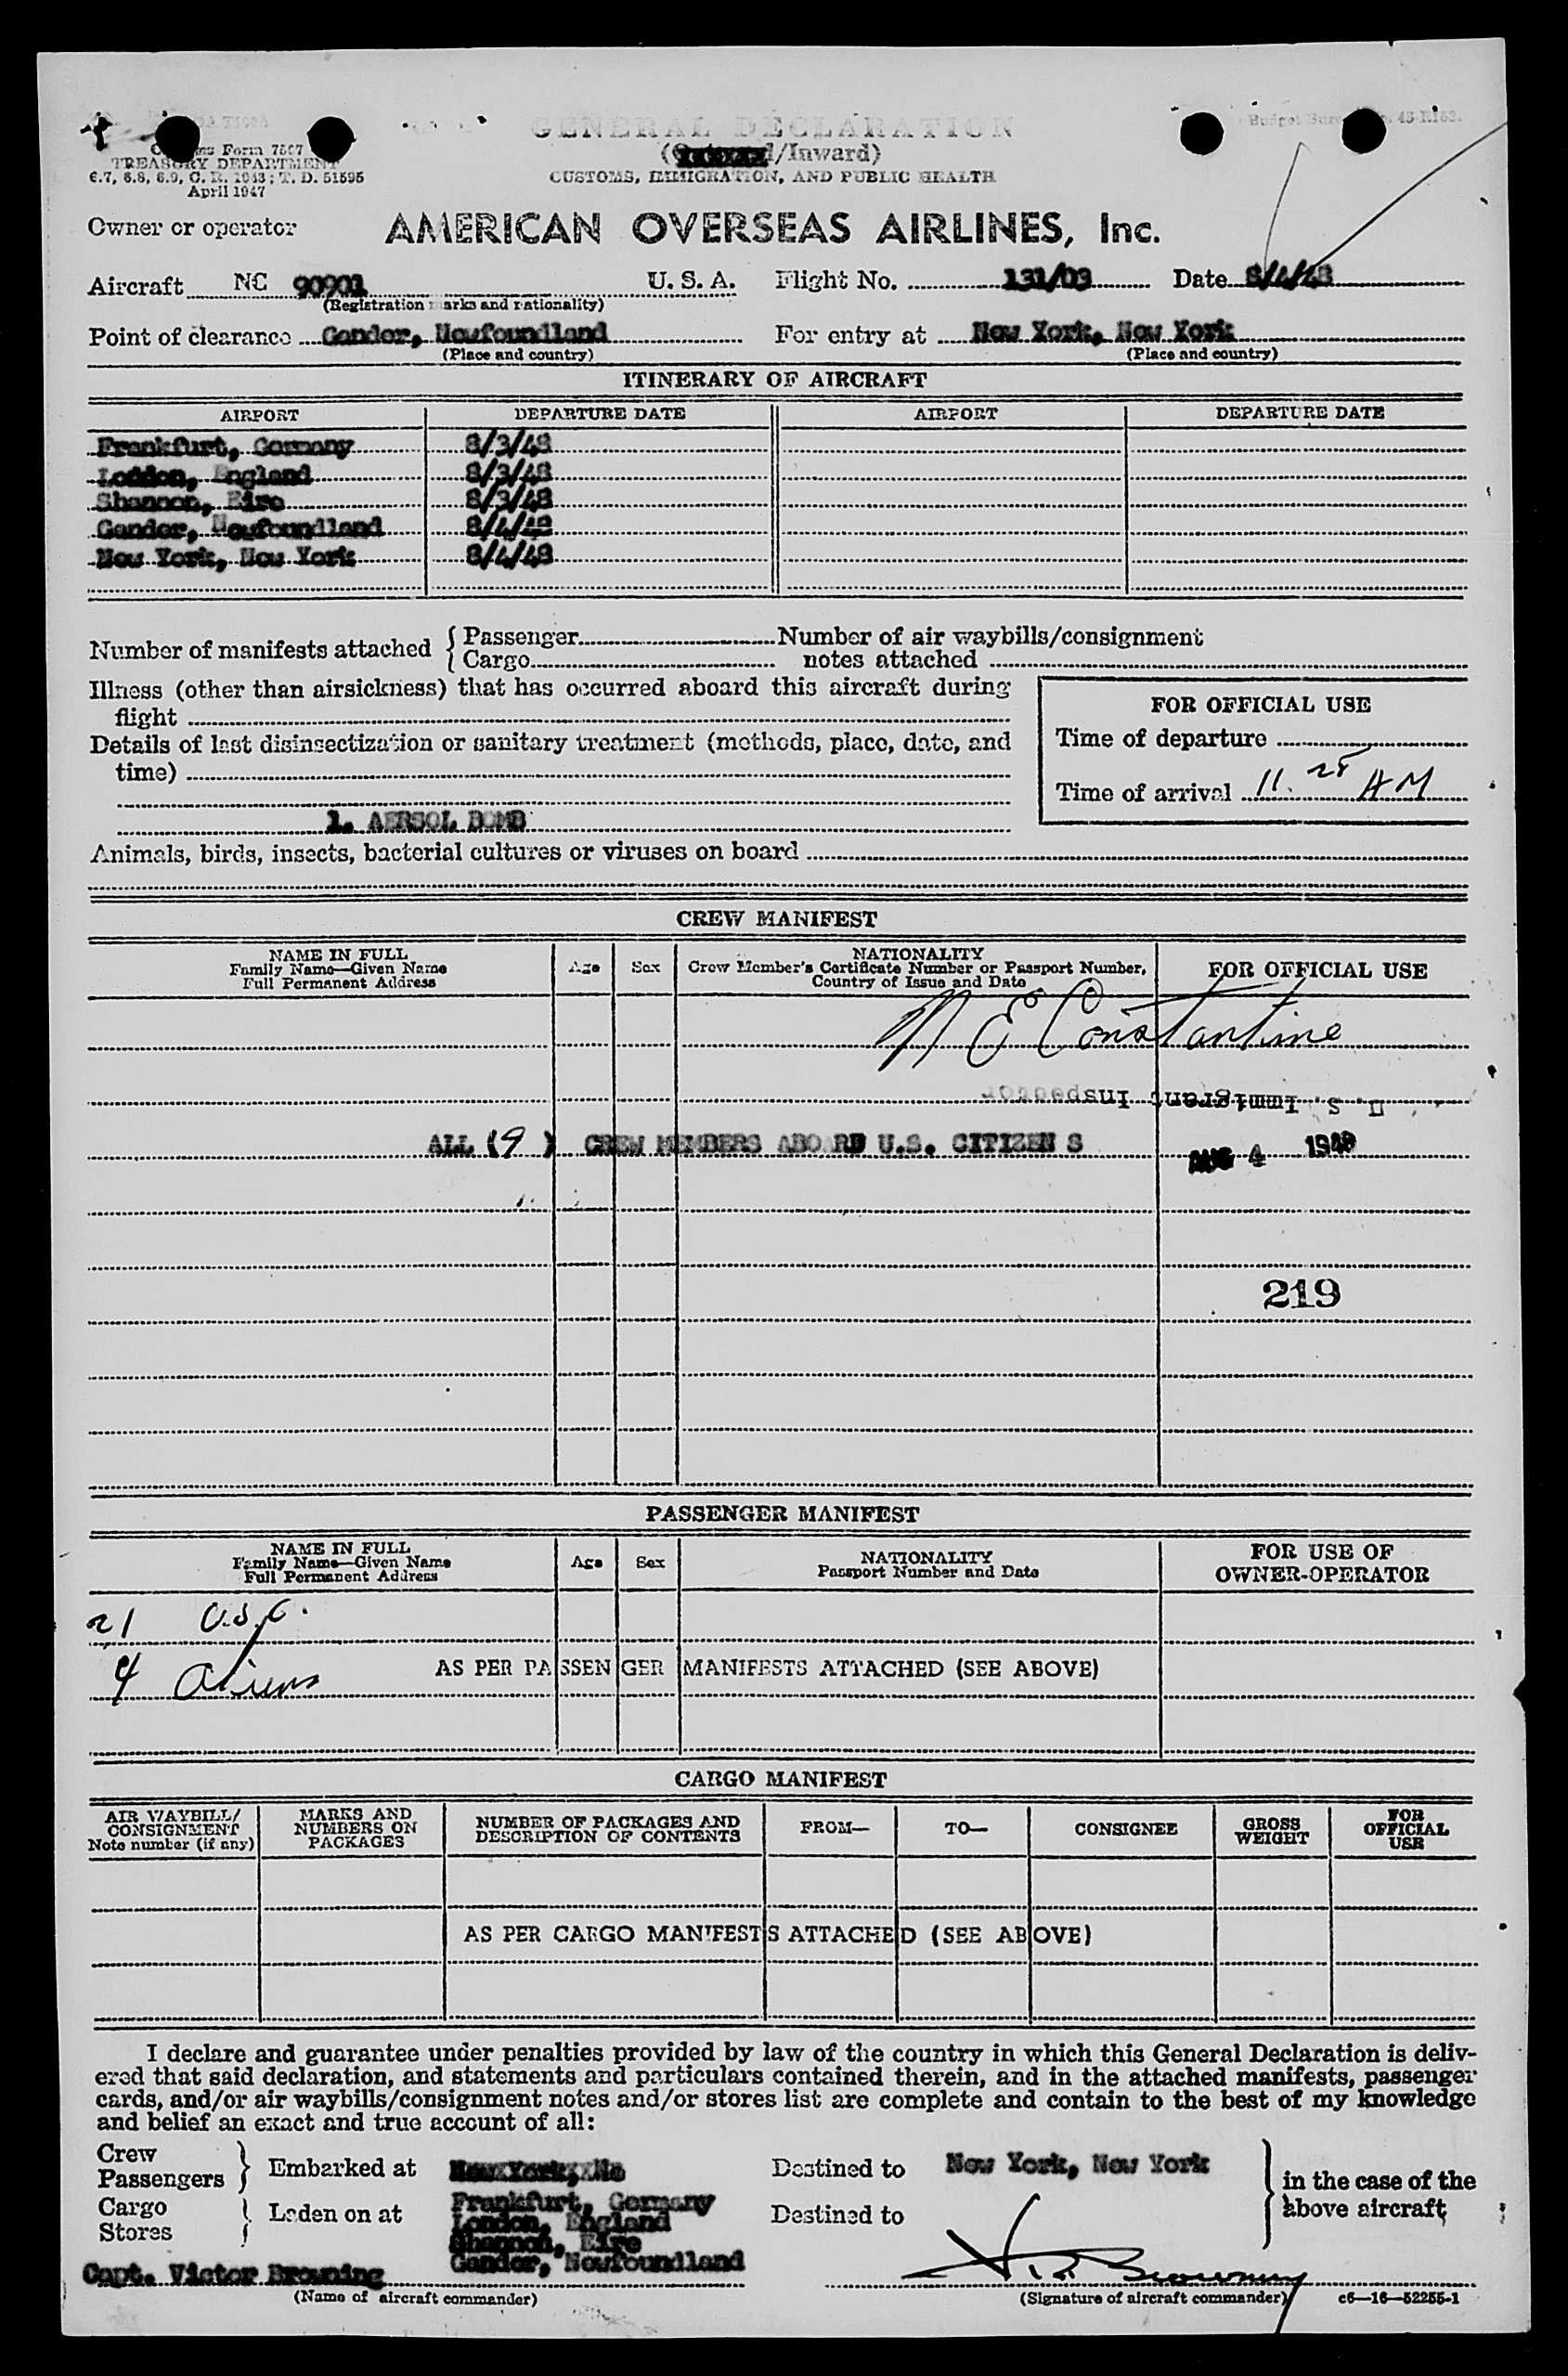 GENERAL DECLARATION
/Inward)
CUSTOMS, IMMIGRATION, AND PUBLIC HEALTH
Customs Form 7507
TREASURY DEPARTMENT
6.7, 6.8, 6.9, C. R. 1943; T. D. 51595
April 1947
Owner or operator AMERICAN OVERSEAS AIRLINES, Inc.
Aircraft NC 90901 U. S. A. Flight No. 131/03 Date 8/4/48
(Registration marks and nationality)
Point of clearance Gander, Newfoundland For entry at New York, New York
(Place and country) (Place and country)
ITINERARY OF AIRCRAFT
AIRPORT DEPARTURE DATE AIRPORT DEPARTURE DATE
Frankfurt, Germany 8/3/48
London, England 8/3/48
Shannon, Eire 8/3/48
Gander, Newfoundland 8/4/48
New York, New York 8/4/48
Number of manifests attached { Passenger Number of air waybills/consignment
Cargo notes attached
Illness (other than airsickness) that has occurred aboard this aircraft during
flight
Details of last disinsectization or sanitary treatment (methods, place, date, and
time)
1. AERSOL BOMB
FOR OFFICIAL USE
Time of departure
Time of arrival 11.25 AM
Animals, birds, insects, bacterial cultures or viruses on board
CREW MANIFEST
NAME IN FULL
Family Name—Given Name
Full Permanent Address
Age Sex
NATIONALITY
Crew Member's Certificate Number or Passport Number,
Country of Issue and Date
FOR OFFICIAL USE
N E Constantine
U. S. Immigrant Inspector
ALL (9) CREW MEMBERS ABOARD U.S. CITIZENS
AUG 4 1948
219
PASSENGER MANIFEST
NAME IN FULL
Family Name—Given Name
Full Permanent Address
Age Sex
NATIONALITY
Passport Number and Date
FOR USE OF
OWNER-OPERATOR
21 U.S.C.
4 Aliens
AS PER PASSENGER MANIFESTS ATTACHED (SEE ABOVE)
CARGO MANIFEST
AIR WAYBILL/
CONSIGNMENT
Note number (if any)
MARKS AND
NUMBERS ON
PACKAGES
NUMBER OF PACKAGES AND
DESCRIPTION OF CONTENTS
FROM— TO— CONSIGNEE
GROSS
WEIGHT
FOR
OFFICIAL
USE
AS PER CARGO MANIFESTS ATTACHED (SEE ABOVE)
I declare and guarantee under penalties provided by law of the country in which this General Declaration is deliv-
ered that said declaration, and statements and particulars contained therein, and in the attached manifests, passenger
cards, and/or air waybills/consignment notes and/or stores list are complete and contain to the best of my knowledge
and belief an exact and true account of all:
Crew
Passengers } Embarked at Destined to New York, New York
Cargo
Stores } Laden on at Destined to
in the case of the
above aircraft
Frankfurt, Germany
London, England
Shannon, Eire
Gander, Newfoundland
Capt. Victor Browning
(Name of aircraft commander) (Signature of aircraft commander) c6—16—52255-1